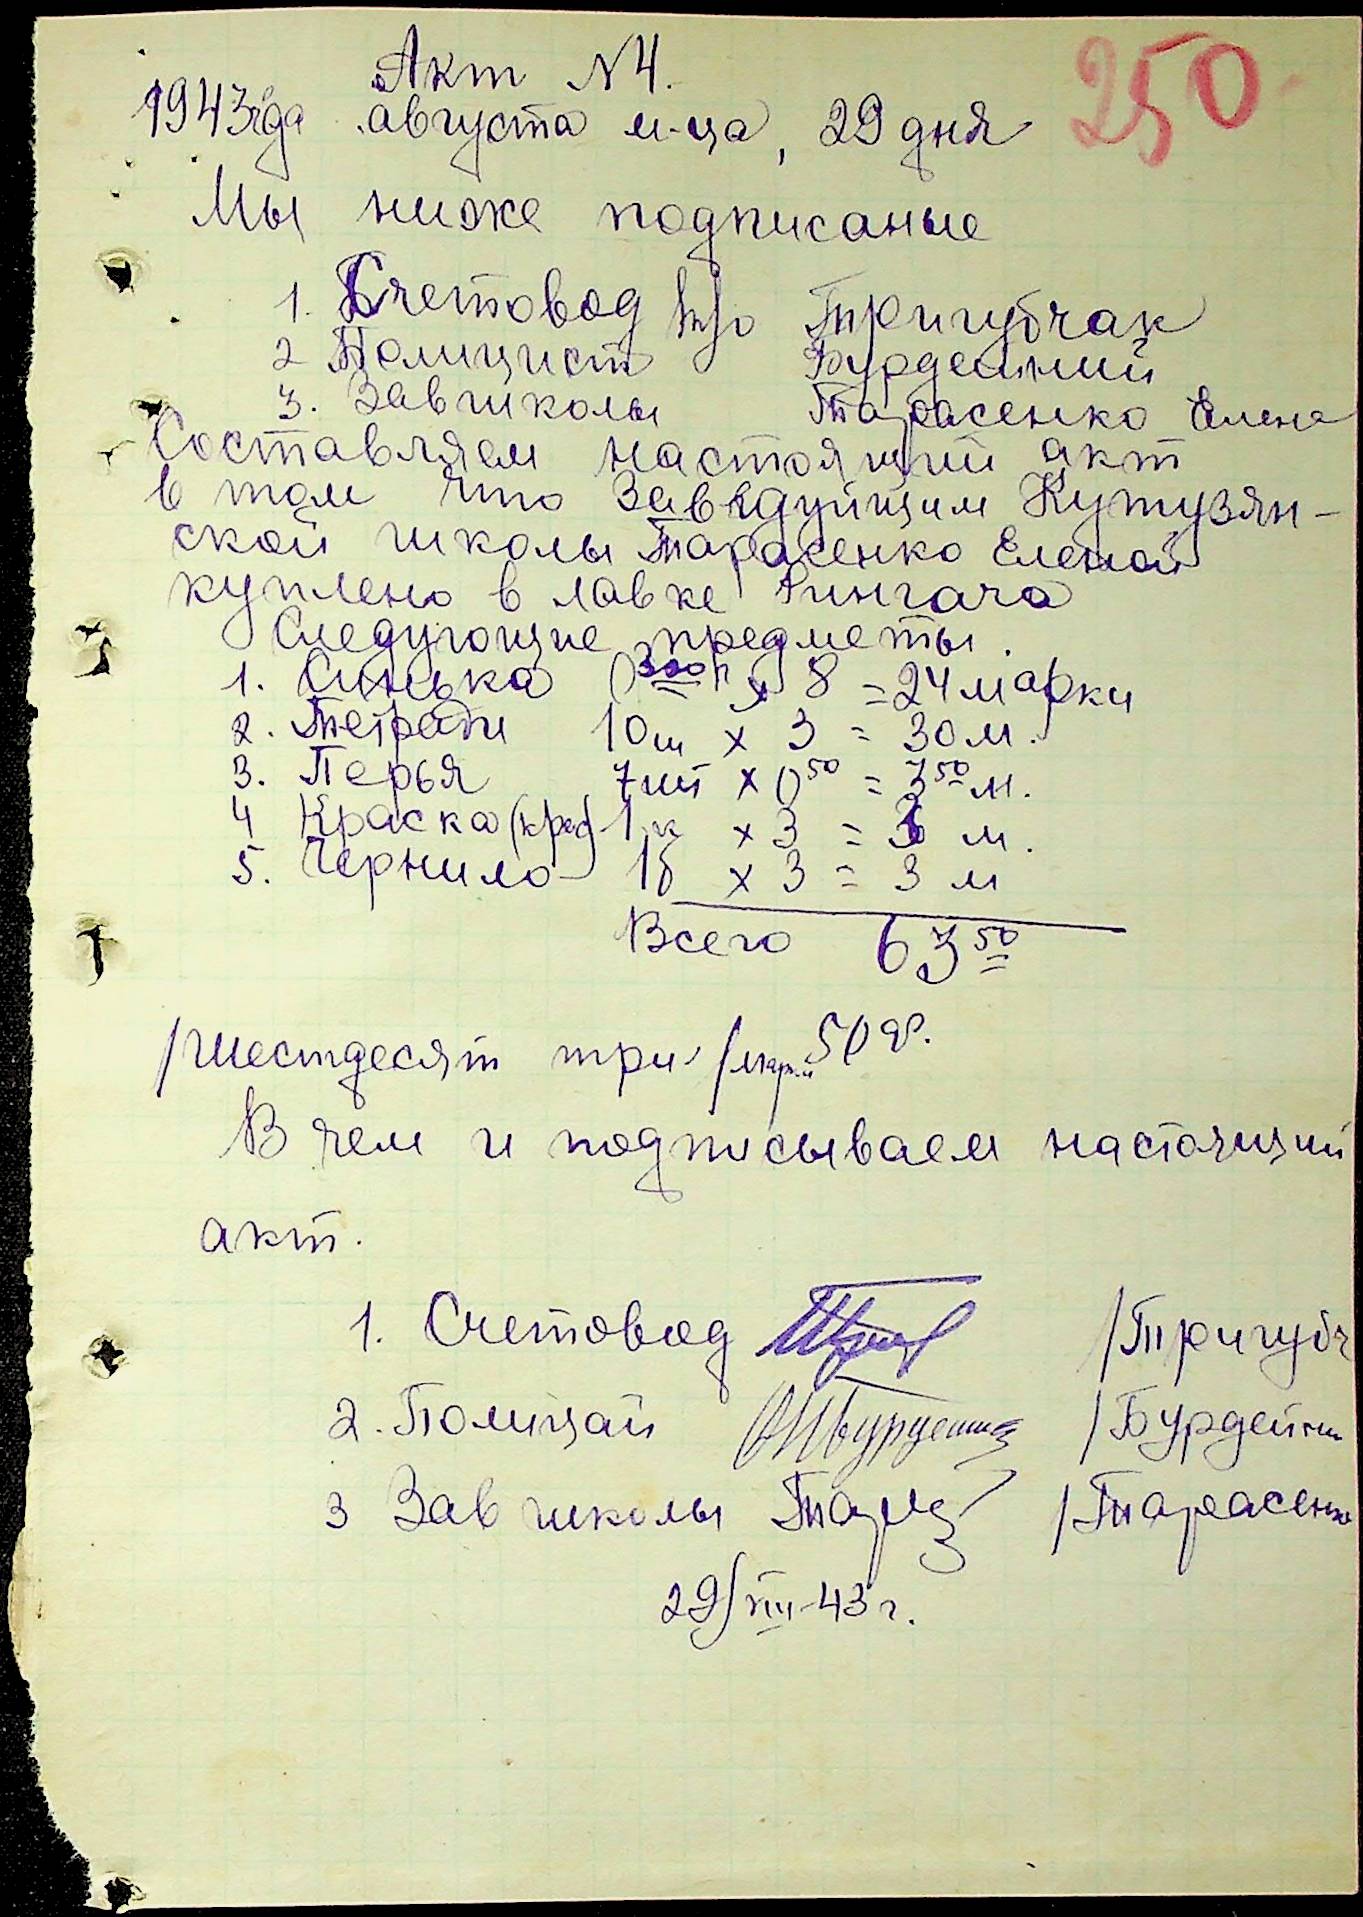 250
Акт N4.
1943года августа м-ца, 29 дня
Мы ниже подписаные
1. Счетовод Тригубчак
2 Полицист Бурдейный
3. Завшколы Тарасенко Елена
Составляем настоящий акт
в том что Заведуйщим Кутузян-
ской школы Тарасенко Еленой
куплено в лавке Рингача
Следующие предметы.
1. Синька x 8 = 24 марки
2. Тетради 10ш x 3 = 30 м.
3. Перья 7шт x 0 50 = 3 50 м.
4 Краска (крас) 1 к x 3 = 3 м.
5. Чернило 1б x 3 = 3 м
Всего 63 50
/Шестдесят три/ марки 50 ф.
В чем и подписываем настоящий
акт.
1. Счетовод /Тригубч
2. Поліцай /Бурдейни
3 Зав школы /Тарасенко
29/VIII-43 г.